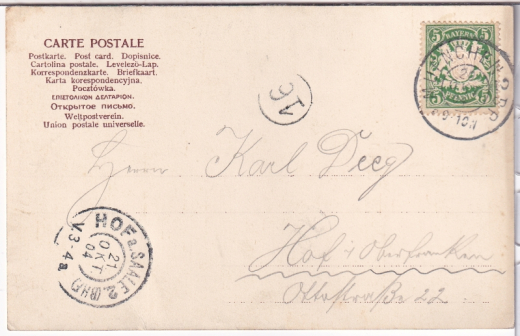 CARTE POSTALE
Postkarte. Post card. Dopisnice.
Cartolina postale. Levelező-Lap.
Korrespondenzkarte. Briefkaart.
Karta korespondencyjna.
Pocztówka.
ΕΠΙΣΤΟΛΙΚΟΝ ΔΕΛΤΑΡΙΟΝ.
Открытое письмо.
Weltpostverein.
Union postale universelle.
5 BAYERN 5
5 PFENNIG 5
Herrn Karl Deeg
Hof i/Oberfranken
Ottostraße 22
HOF a. SAALE 2. (BHF)
21
OKT
04
V. 3-4